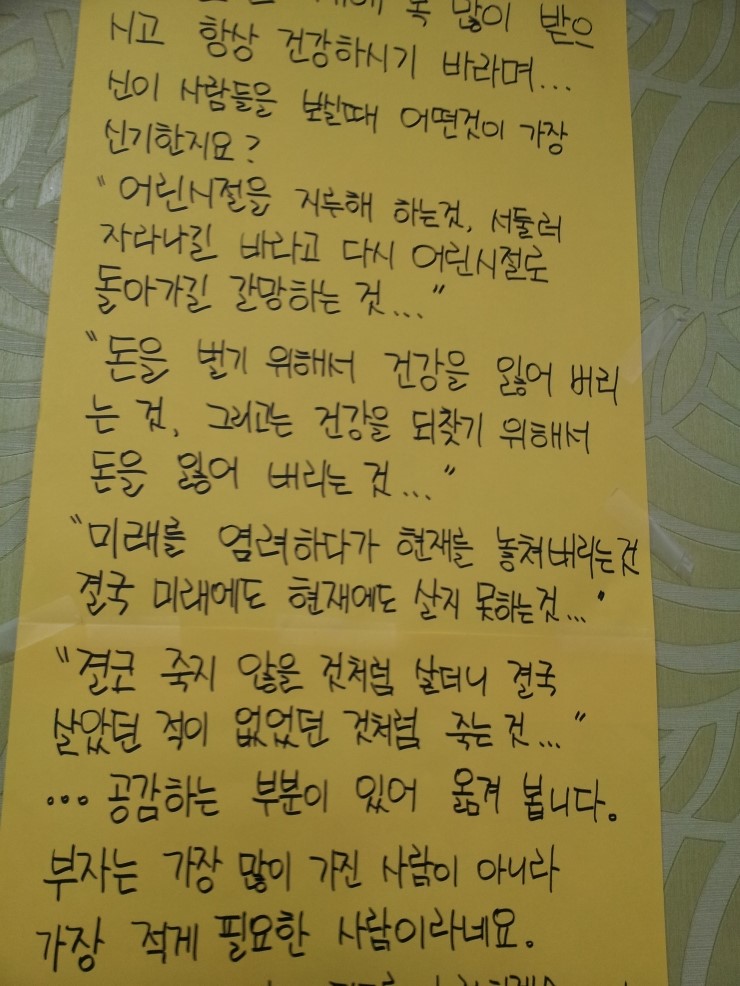 복 많이 받으
시고 항상 건강하시기 바라며...
신이 사람들을 보실때 어떤것이 가장
신기한지요?
"어린시절을 지루해 하는것, 서둘러
자라나긴 바라고 다시 어린시절로
돌아가길 갈망하는 것..."
"돈을 벌기 위해서 건강을 잃어 버리
는 것, 그리고는 건강을 되찾기 위해서
돈을 잃어 버리는 것..."
"미래를 염려하다가 현재를 놓쳐버리는것
결국 미래에도 현재에도 살지 못하는것..."
"결코 죽지 않을 것처럼 살더니 결국
살았던 적이 없었던 것처럼 죽는 것..."
... 공감하는 부분이 있어 옮겨 봅니다.
부자는 가장 많이 가진 사람이 아니라
가장 적게 필요한 사람이라네요.